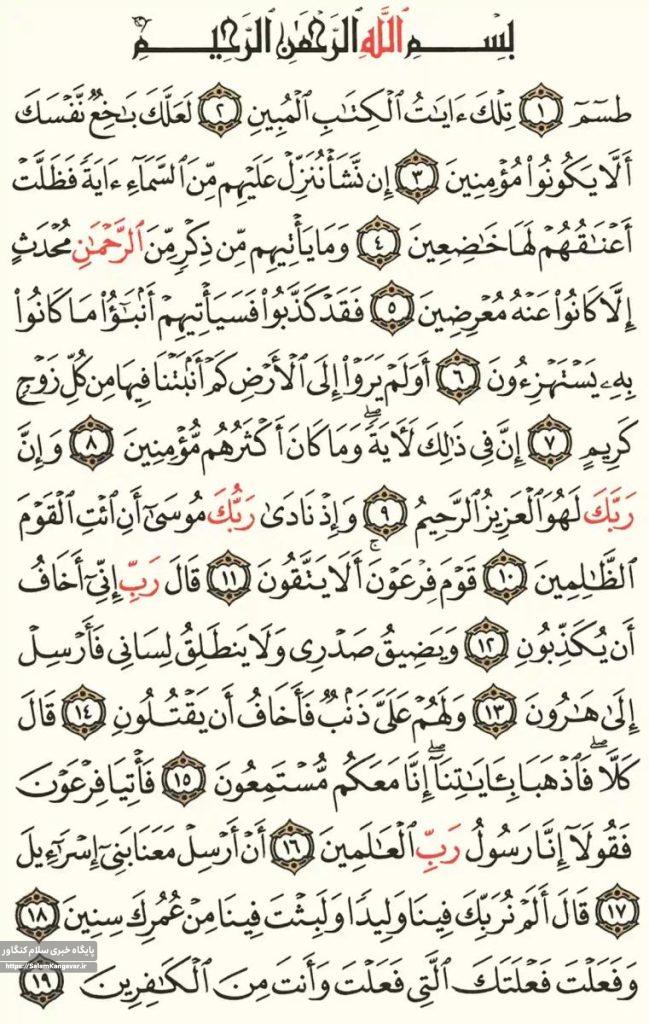 بِسْمِ ٱللَّهِ ٱلرَّحْمَٰنِ ٱلرَّحِيمِ
طسٓمٓ ١ تِلْكَ ءَايَٰتُ ٱلْكِتَٰبِ ٱلْمُبِينِ ٢ لَعَلَّكَ بَٰخِعٌ نَّفْسَكَ
أَلَّا يَكُونُوا۟ مُؤْمِنِينَ ٣ إِن نَّشَأْ نُنَزِّلْ عَلَيْهِم مِّنَ ٱلسَّمَآءِ ءَايَةً فَظَلَّتْ
أَعْنَٰقُهُمْ لَهَا خَٰضِعِينَ ٤ وَمَا يَأْتِيهِم مِّن ذِكْرٍ مِّنَ ٱلرَّحْمَٰنِ مُحْدَثٍ
إِلَّا كَانُوا۟ عَنْهُ مُعْرِضِينَ ٥ فَقَدْ كَذَّبُوا۟ فَسَيَأْتِيهِمْ أَنۢبَٰٓؤُا۟ مَا كَانُوا۟
بِهِۦ يَسْتَهْزِءُونَ ٦ أَوَلَمْ يَرَوْا۟ إِلَى ٱلْأَرْضِ كَمْ أَنۢبَتْنَا فِيهَا مِن كُلِّ زَوْجٍ
كَرِيمٍ ٧ إِنَّ فِى ذَٰلِكَ لَءَايَةً ۖ وَمَا كَانَ أَكْثَرُهُم مُّؤْمِنِينَ ٨ وَإِنَّ
رَبَّكَ لَهُوَ ٱلْعَزِيزُ ٱلرَّحِيمُ ٩ وَإِذْ نَادَىٰ رَبُّكَ مُوسَىٰٓ أَنِ ٱئْتِ ٱلْقَوْمَ
ٱلظَّٰلِمِينَ ١٠ قَوْمَ فِرْعَوْنَ ۚ أَلَا يَتَّقُونَ ١١ قَالَ رَبِّ إِنِّىٓ أَخَافُ
أَن يُكَذِّبُونِ ١٢ وَيَضِيقُ صَدْرِى وَلَا يَنطَلِقُ لِسَانِى فَأَرْسِلْ
إِلَىٰ هَٰرُونَ ١٣ وَلَهُمْ عَلَىَّ ذَنۢبٌ فَأَخَافُ أَن يَقْتُلُونِ ١٤ قَالَ
كَلَّا ۖ فَٱذْهَبَا بِـَٔايَٰتِنَآ ۖ إِنَّا مَعَكُم مُّسْتَمِعُونَ ١٥ فَأْتِيَا فِرْعَوْنَ
فَقُولَآ إِنَّا رَسُولُ رَبِّ ٱلْعَٰلَمِينَ ١٦ أَنْ أَرْسِلْ مَعَنَا بَنِىٓ إِسْرَٰٓءِيلَ
١٧ قَالَ أَلَمْ نُرَبِّكَ فِينَا وَلِيدًا وَلَبِثْتَ فِينَا مِنْ عُمُرِكَ سِنِينَ ١٨
وَفَعَلْتَ فَعْلَتَكَ ٱلَّتِى فَعَلْتَ وَأَنتَ مِنَ ٱلْكَٰفِرِينَ ١٩
پایگاه خبری سلام کنگاور
https://SalamKangavar.ir